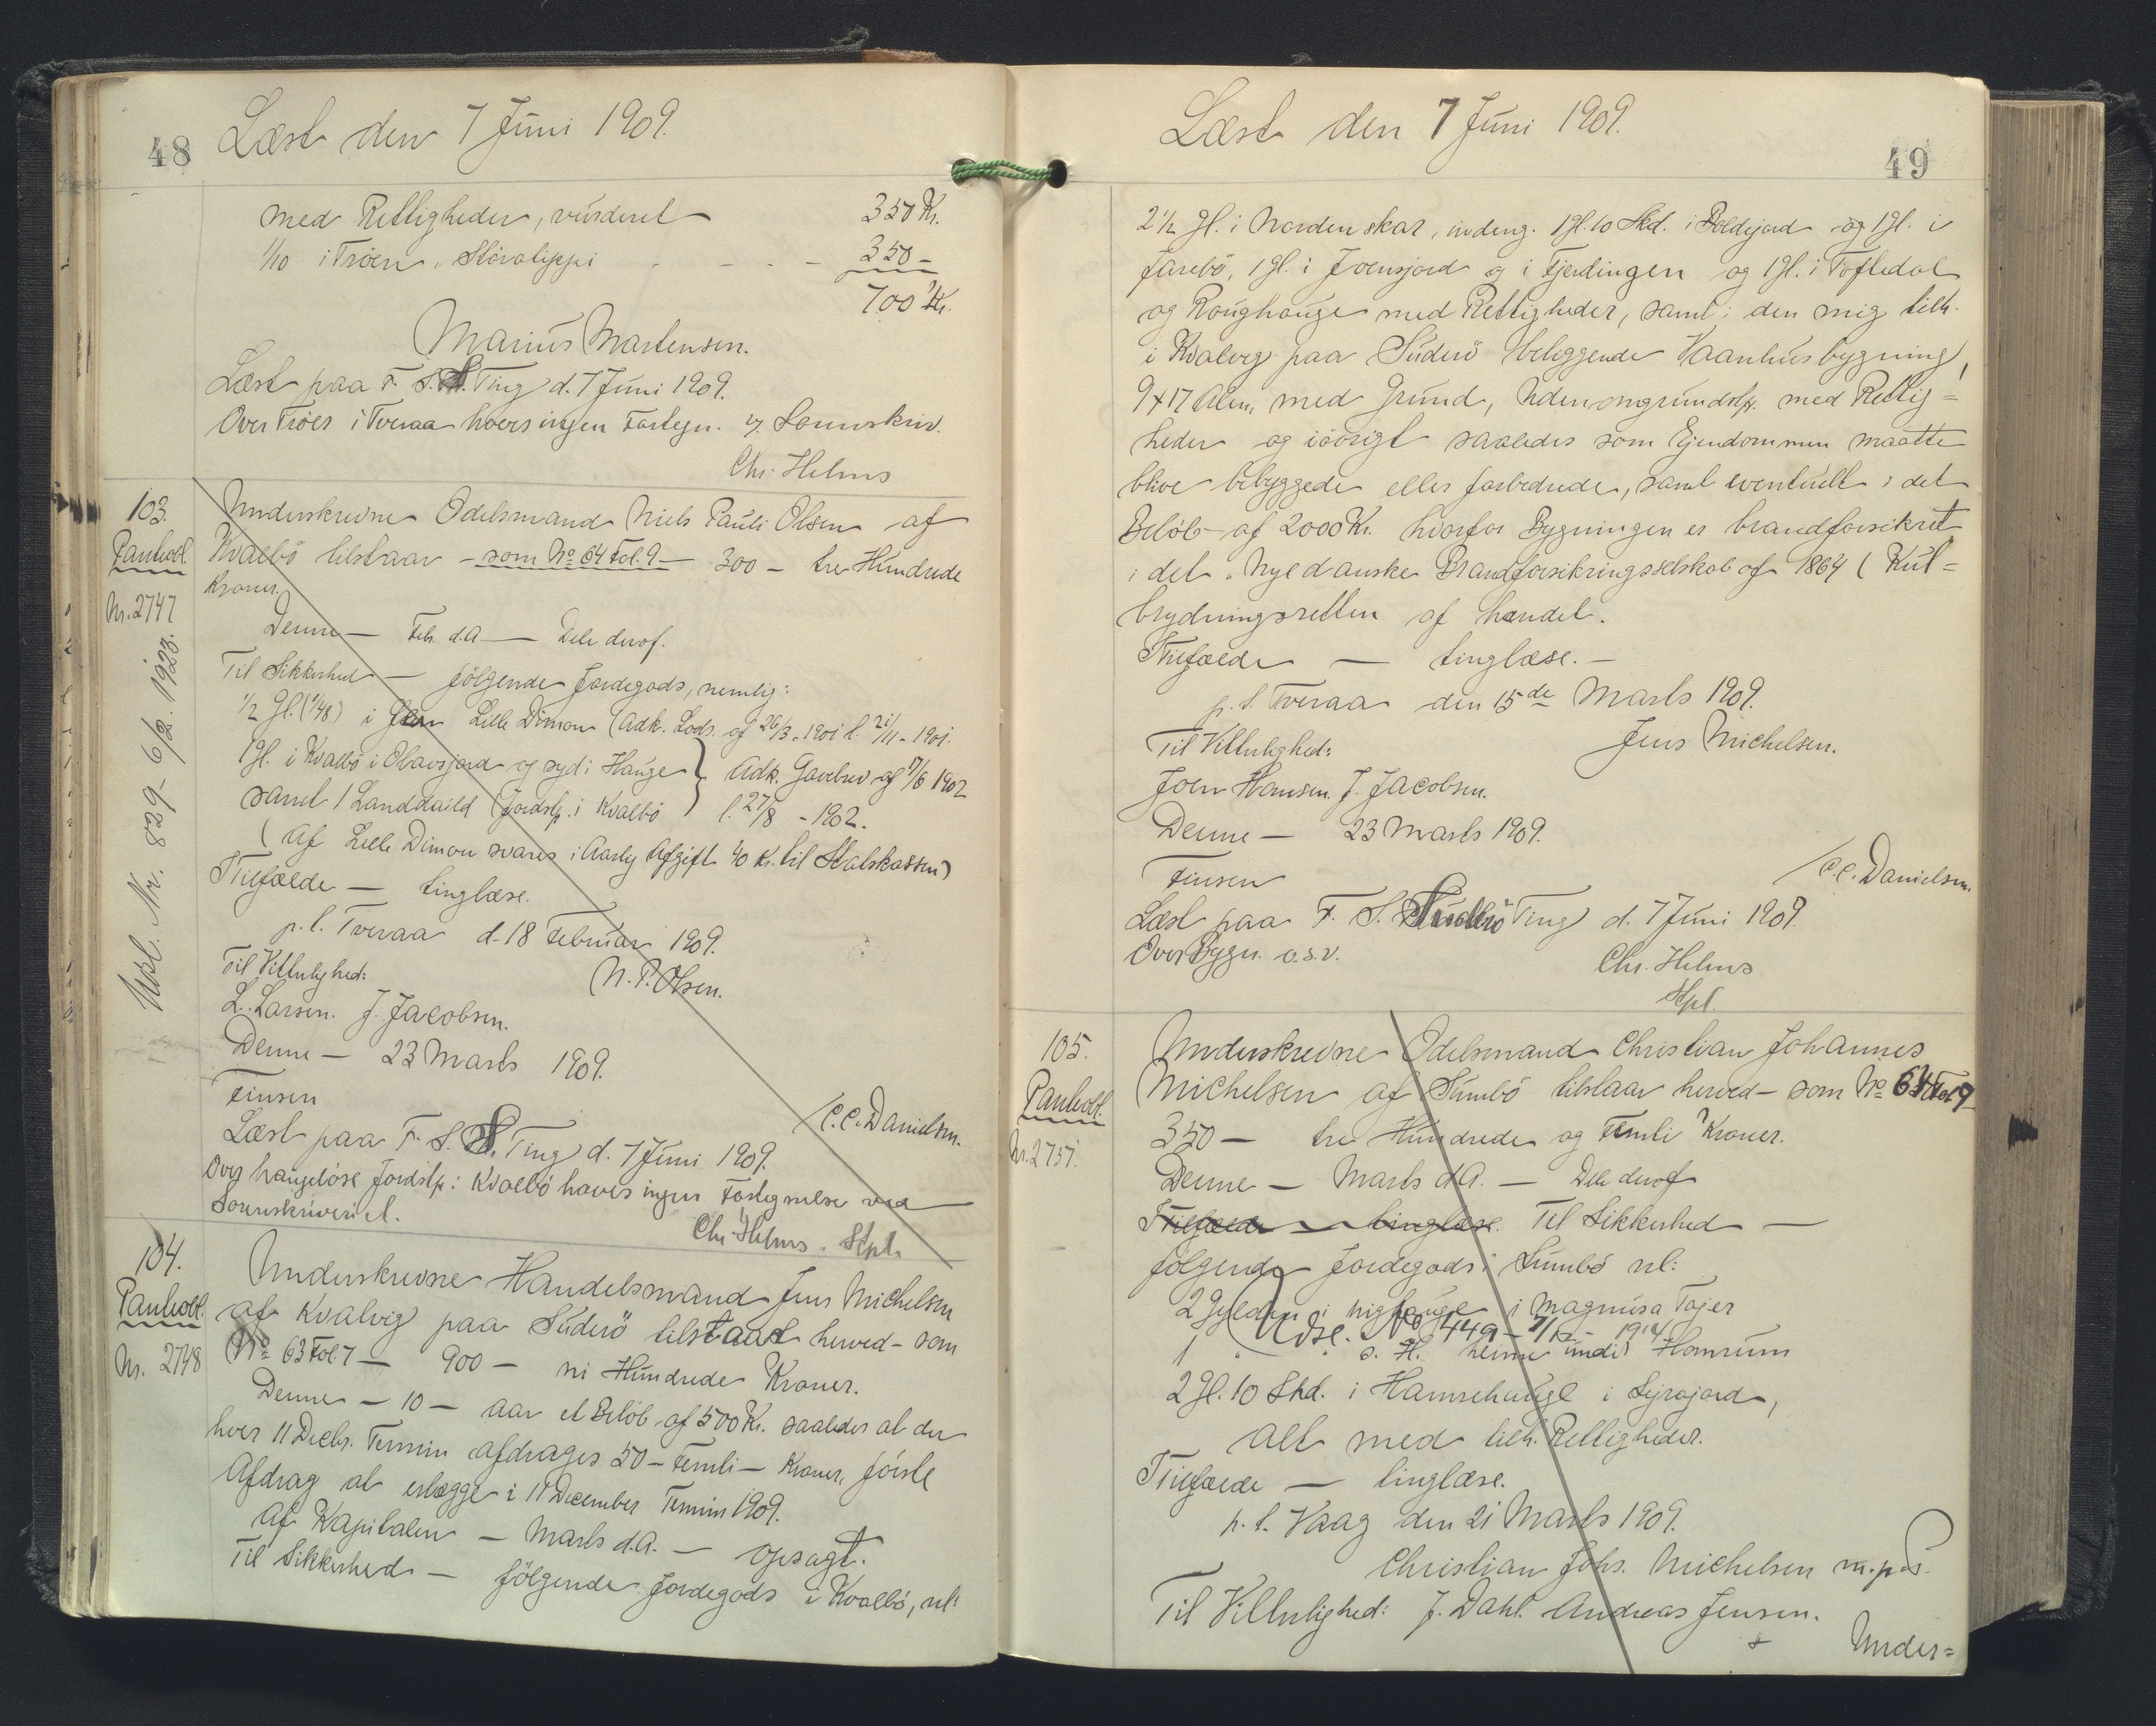 48
Læst den 7 Juni 1909.
med Rettigheder, vurderet 350 Kr.
1/10 i Tröen, Störalippi - - - - 350 -
700 Kr.
Marius Martensen.
Læst paa F. S. S. Ting d. 7 Juni 1909.
Over Tröer i Tveraa haves ingen Fortegn. v. Sorenskriv.
Chr. Helms
103.
Panteobl.
Nr. 2747
Udsl. Nr. 829 - 6/2 1923.
Underskrevne Odelsmand Niels Pauli Olsen af
Kvalbö tilstaar - som No 64 Fol. 9 - 300 - tre Hundrede
Kroner.
Denne - Feb. d.A - Dele deraf.
Til Sikkerhed - fölgende Jordegods, nemlig:
1/2 Gl. (1/48) i Lille Dimon (Adk. Lods. af 26/3 - 1901 l. 21/11 - 1901.
1 Gl. i Kvalbö i Olavsjord og syd i Hauge } Adk. Gavebrev af 17/6 1902
samt 1 Landdaild (Jordstk. i Kvalbö } l. 27/8 - 1902.
(Af Lille Dimon svares i Aarlig Afgift 40 Kr. til Statskassen)
I Tilfælde - tinglæse.
p. t. Tveraa d. 18 Februar 1909.
Til Vitterlighed: N. P. Olsen.
L. Larsen. J. Jacobsen.
Denne - 23 Marts 1909.
Finsen C.C. Danielsen.
Læst paa F. S. S. Ting d. 7 Juni 1909.
Over haugelöse Jordstk. i Kvalbö haves ingen Fortegnelse ved
Sorenskriveriet.
Chr. Helms. Kpt.
104.
Panteobl.
Nr. 2748
Underskrevne Handelsmand Jens Michelsen
af Kvalvig paa Suderö tilstaar herved - som
No 63 Fol. 7 - 900 - ni Hundrede Kroner.
Denne - 10 - Aar et Belöb af 500 Kr. saaledes at der
hver 11 Decbr. Termin afdrages 50 - Femti - Kroner, förste
Afdrag at erlægge i 11 December Termin 1909.
Af Kapitalen - Marts d.A. - opsagt.
Til Sikkerhed - fölgende Jordegods i Kvalbö, nl:
Læst den 7 Juni 1909.
49
2 1/2 Gl. i Nordenskar, indeng. 1 Gl. 10 Skd. i Boldejord og 1 Gl. i
Jarebö, 1 Gl. i Joensjord og i Fjerdingen og 1 Gl. i Toftedal
og Roughauge med Rettigheder, samt i den mig tilh.
i Kvalvig paa Suderö beliggende Vaanhusbygning,
9 x 17 Alen, med Grund, Udenomgrundstk. med Rettig=
heder og iövrigt saaledes som Ejendommen maatte
blive bebyggede eller forbedrede, samt eventuelt i det
Belöb af 2000 Kr. hvorfor Bygningen er brandforsikret
i det "Nye danske Brandforsikringsselskab af 1864 (Kul=
brydningsretten af handel.
I Tilfælde - tinglæse. -
p. t. Tveraa den 15de Marts 1909.
Til Vitterlighed: Jens Michelsen.
Joen Hansen. J. Jacobsen.
Denne - 23 Marts 1909.
Finsen C.C. Danielsen.
Læst paa F. S. Suderö Ting d. 7 Juni 1909.
Over Bygn. o.s.v.
Chr. Helms
Kpt.
105.
Panteobl.
Nr. 2757.
Underskrevne Odelsmand Christian Johannes
Michelsen af Sumbö tilstaar herved - som No 64 Fol 9 -
350 - tre Hundrede og Femti Kroner.
Denne - Marts d.A. - Dele deraf
I Tilfælde - tinglæse. Til Sikkerhed -
fölgende Jordegods i Sumbö nl:
2 Gylden i i Magnusa Tojer
Udsl. No 449 - 7/12 - 1914
1 " " s. H. heime under Homrum
2 Gl. 10 Skd. i Hamrehauge i Syrajord,
Alt med tilh. Rettigheder.
I Tilfælde - tinglæse.
p. t. Vaag den 21 Marts 1909.
Christian Johs. Michelsen m.p.S.
Til Vitterlighed: J. Dahl. Andreas Jensen.
Under=